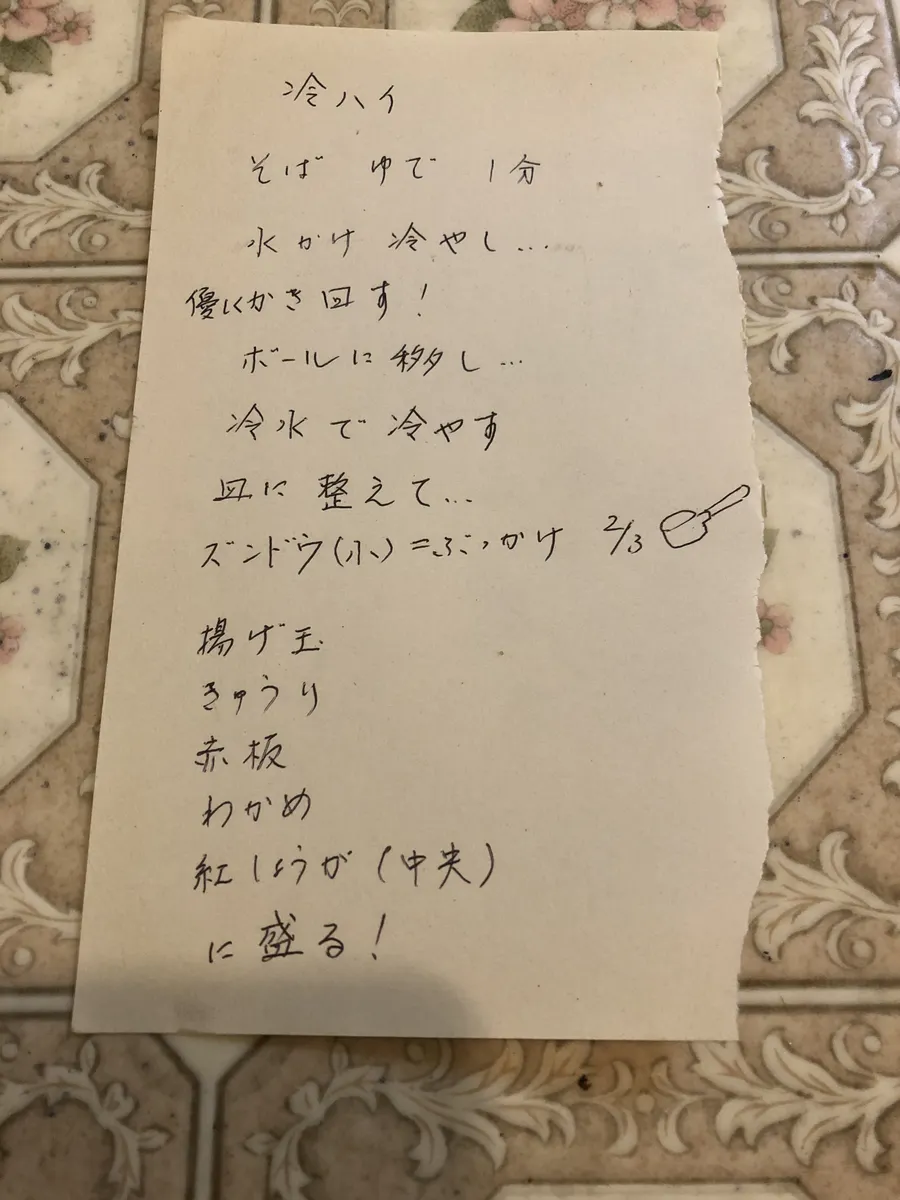 冷ハイ
そば ゆで 1分
水かけ 冷やし...
優しくかき回す!
ボールに移し...
冷水で冷やす
皿に整えて...
ズンドウ(小)=ぶっかけ 2/3
揚げ玉
きゅうり
赤板
わかめ
紅しょうが(中央)
に盛る!